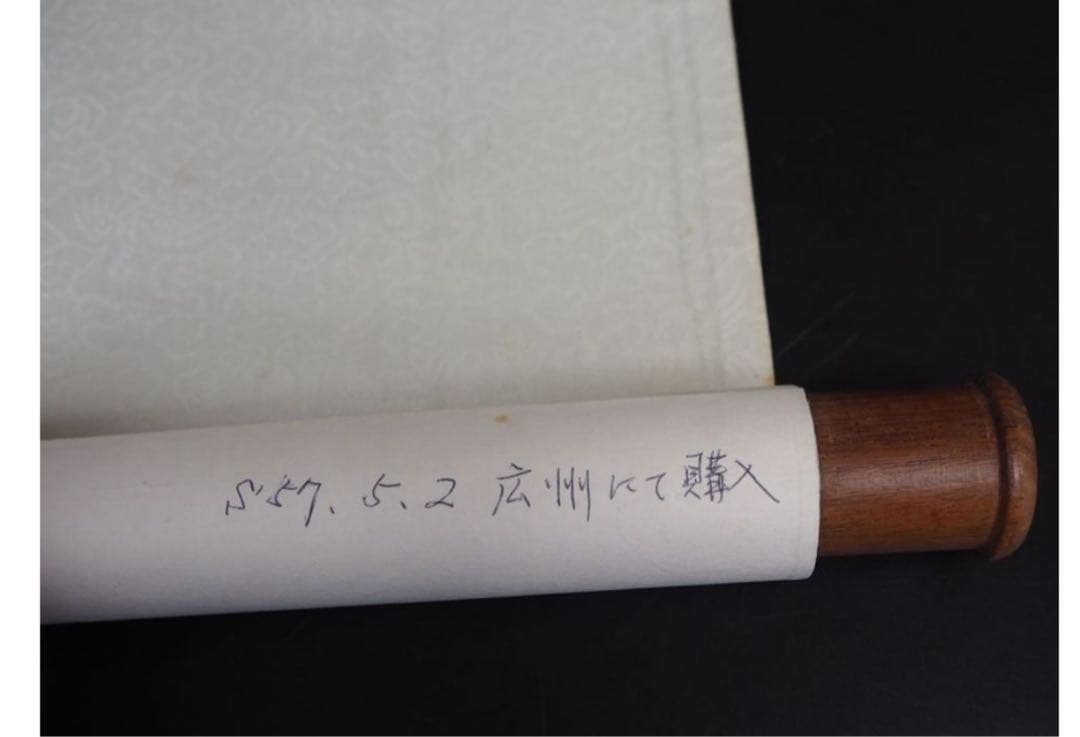 S57.5.2 広州にて購入